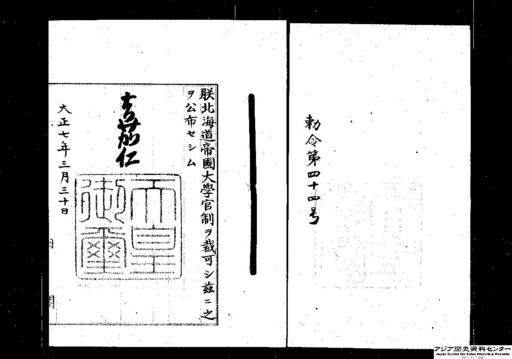 勅令第四十四号
朕北海道帝國大學官制ヲ裁可シ茲ニ之
ヲ公布セシム
嘉仁
天皇
御璽
大正七年三月三十日
内
閣
アジア歴史資料センター
Japan Center for Asian Historical Records